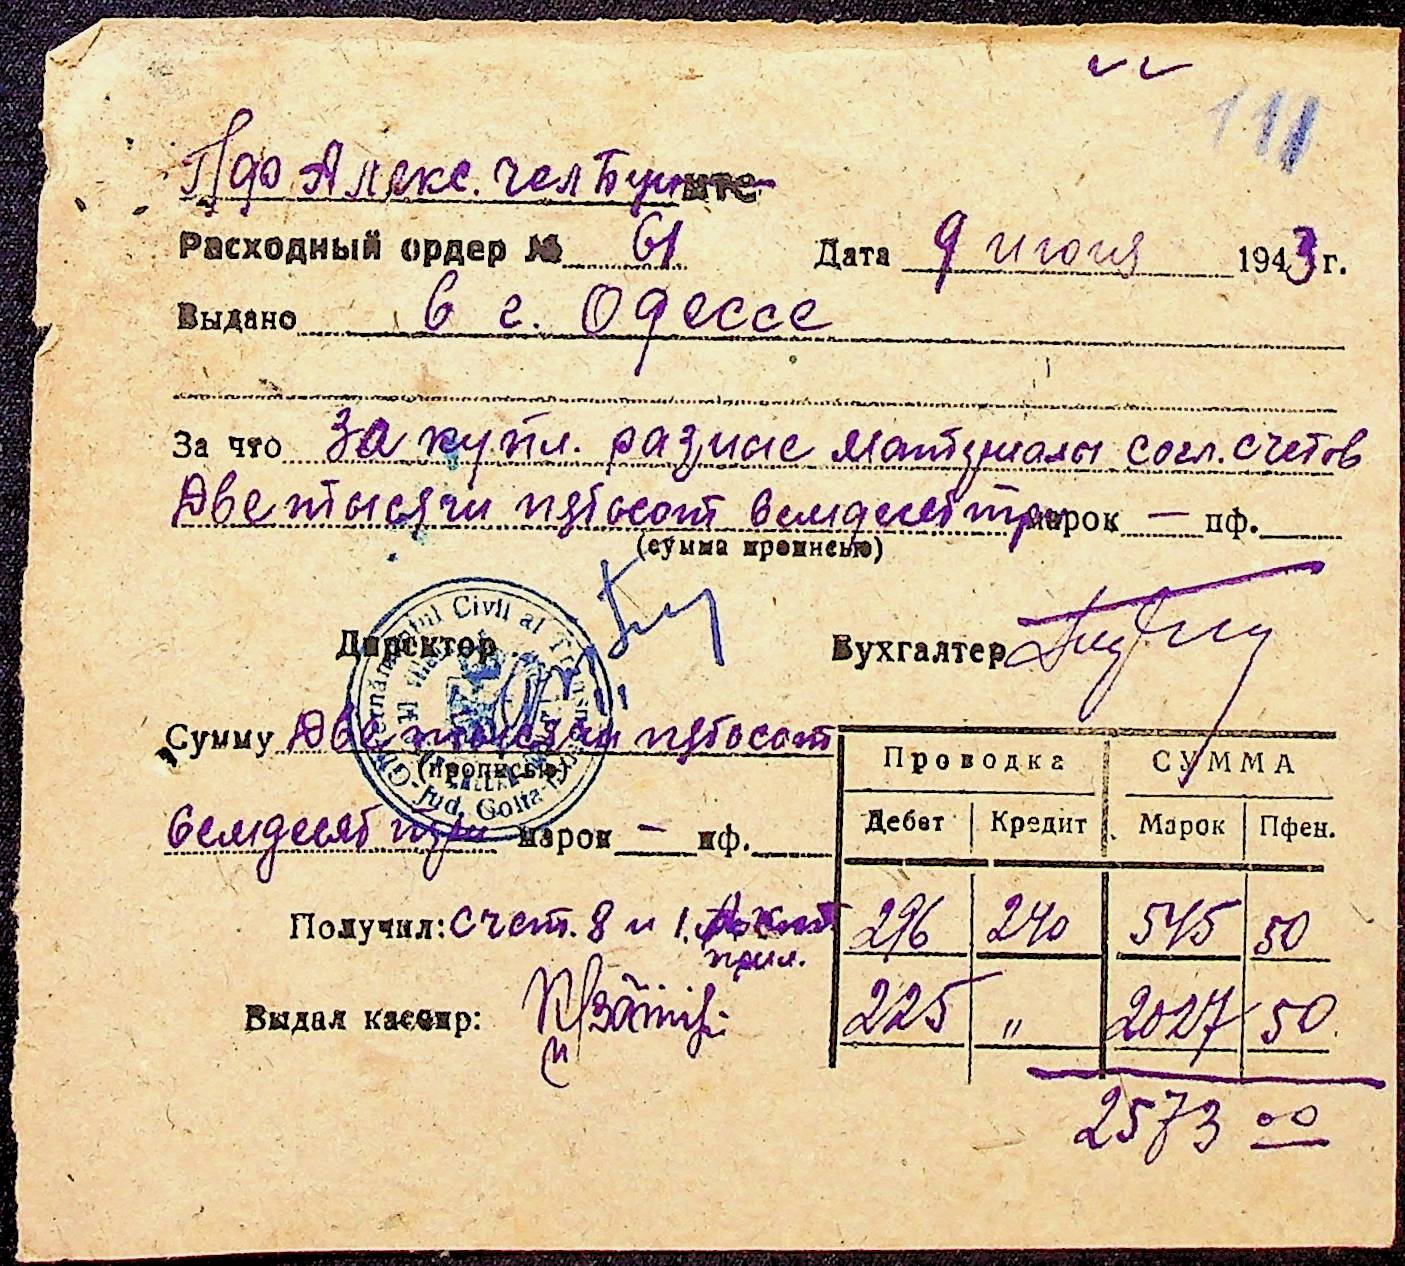 111
Расходный ордер № 61 Дата 9 июня 1943 г.
Выдано в г. Одессе
За что За купл. разные материалы согл. счетов
Две тысячи пятьсот семдесят три марок — пф.
(сумма прописью)
Директор Бухгалтер
Guvernământul Civil al Transnistriei
Jud. Golta
Сумму Две тысячи пятьсот
(прописью)
семдесят три марок — пф.
Проводка СУММА
Дебет Кредит Марок Пфен.
Получил: счет. 8 и 1. прил.
296 240 545 50
Выдал кассир:
225 " 2027 50
2573 00